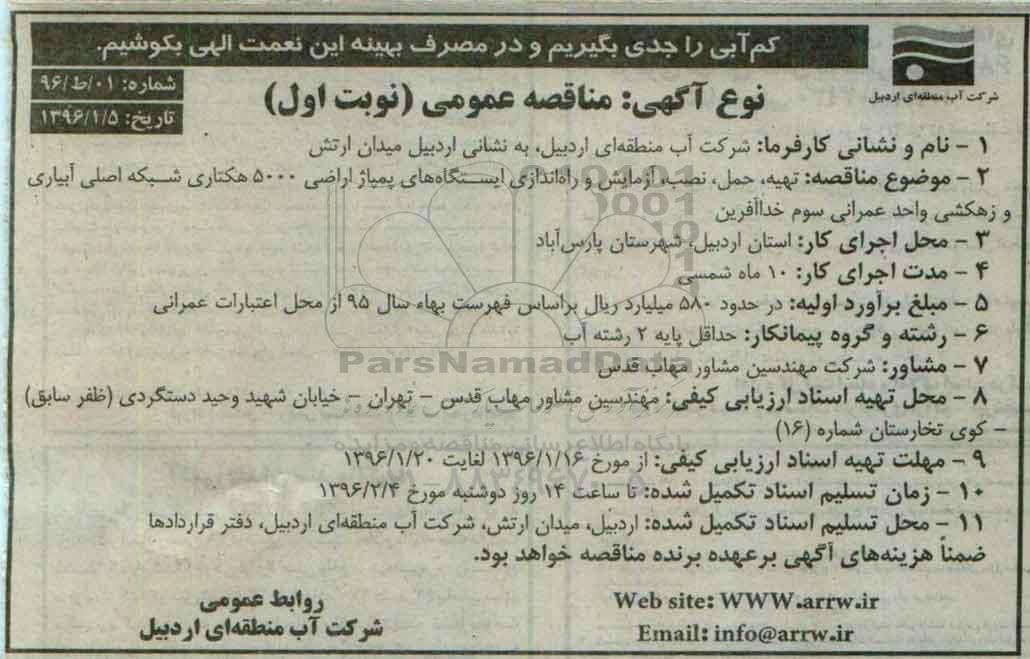 کم‌آبی را جدی بگیریم و در مصرف بهینه این نعمت الهی بکوشیم.
شرکت آب منطقه‌ای اردبیل
شماره: ۰۱/ط/۹۶
تاریخ: ۱۳۹۶/۱/۵
نوع آگهی: مناقصه عمومی (نوبت اول)
۱ - نام و نشانی کارفرما: شرکت آب منطقه‌ای اردبیل، به نشانی اردبیل میدان ارتش
۲ - موضوع مناقصه: تهیه، حمل، نصب، آزمایش و راه‌اندازی ایستگاه‌های پمپاژ اراضی ۵۰۰۰ هکتاری شبکه اصلی آبیاری
و زهکشی واحد عمرانی سوم خداآفرین
۳ - محل اجرای کار: استان اردبیل، شهرستان پارس‌آباد
۴ - مدت اجرای کار: ۱۰ ماه شمسی
۵ - مبلغ برآورد اولیه: در حدود ۵۸۰ میلیارد ریال براساس فهرست بهاء سال ۹۵ از محل اعتبارات عمرانی
۶ - رشته و گروه پیمانکار: حداقل پایه ۲ رشته آب
۷ - مشاور: شرکت مهندسین مشاور مهاب قدس
۸ - محل تهیه اسناد ارزیابی کیفی: مهندسین مشاور مهاب قدس - تهران - خیابان شهید وحید دستگردی (ظفر سابق)
- کوی تخارستان شماره (۱۶)
۹ - مهلت تهیه اسناد ارزیابی کیفی: از مورخ ۱۳۹۶/۱/۱۶ لغایت ۱۳۹۶/۱/۲۰
۱۰ - زمان تسلیم اسناد تکمیل شده: تا ساعت ۱۴ روز دوشنبه مورخ ۱۳۹۶/۲/۴
۱۱ - محل تسلیم اسناد تکمیل شده: اردبیل، میدان ارتش، شرکت آب منطقه‌ای اردبیل، دفتر قراردادها
ضمناً هزینه‌های آگهی برعهده برنده مناقصه خواهد بود.
Web site: WWW.arrw.ir
Email: info@arrw.ir
روابط عمومی
شرکت آب منطقه‌ای اردبیل
ParsNamadData
پایگاه اطلاع رسانی مناقصه و مزایده